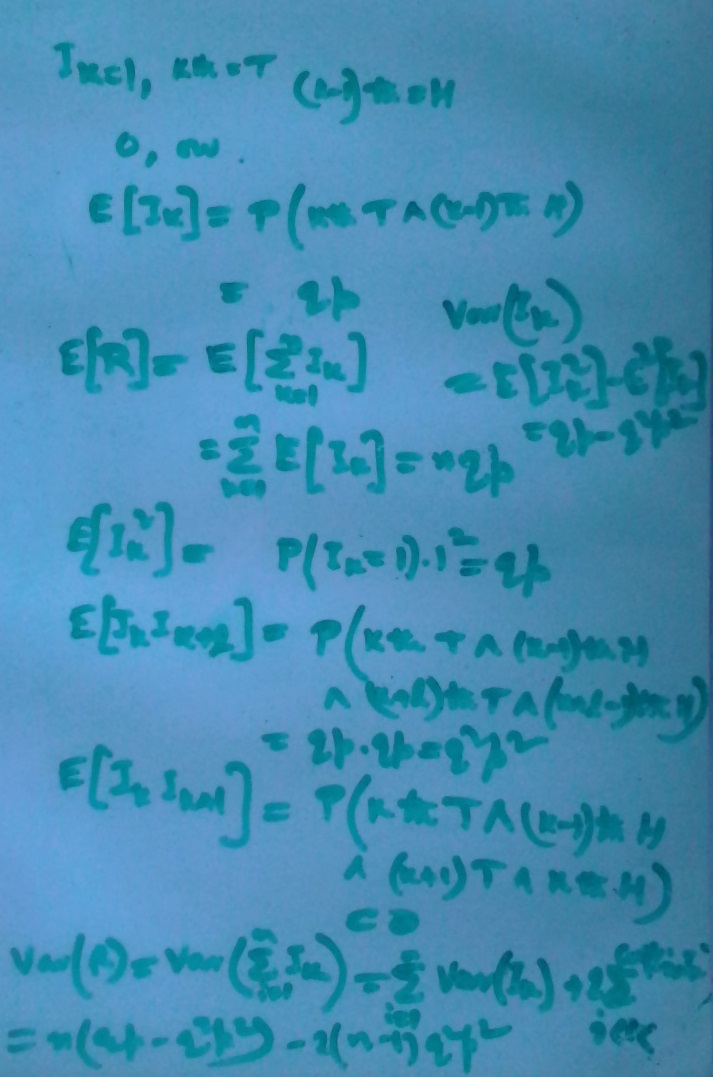 I_k=1, kth=T (k-1)th=H
0, ow.
E[I_k]= P(kth T ∧ (k-1)th H)
= qp
Var(I_k)
E[R]= E[∑_{k=1}^n I_k]
= E[I_k^2]-E^2[I_k]
= qp-q^2p^2
= ∑_{k=1}^n E[I_k] = nqp
E[I_k^2]= P(I_k=1).1^2=qp
E[I_k I_{k+l}]= P(kth T ∧ (k-1)th H
∧ (k+l)th T ∧ (k+l-1)th H)
= qp.qp=q^2p^2
E[I_k I_{k+1}] = P(kth T ∧ (k-1)th H
∧ (k+1) T ∧ kth H)
= 0
Var(R)= Var(∑_{i=1}^n I_k) = ∑_{i=1}^n Var(I_k) + 2∑
= n(qp-q^2p^2) - 2(n-1)q^2p^2